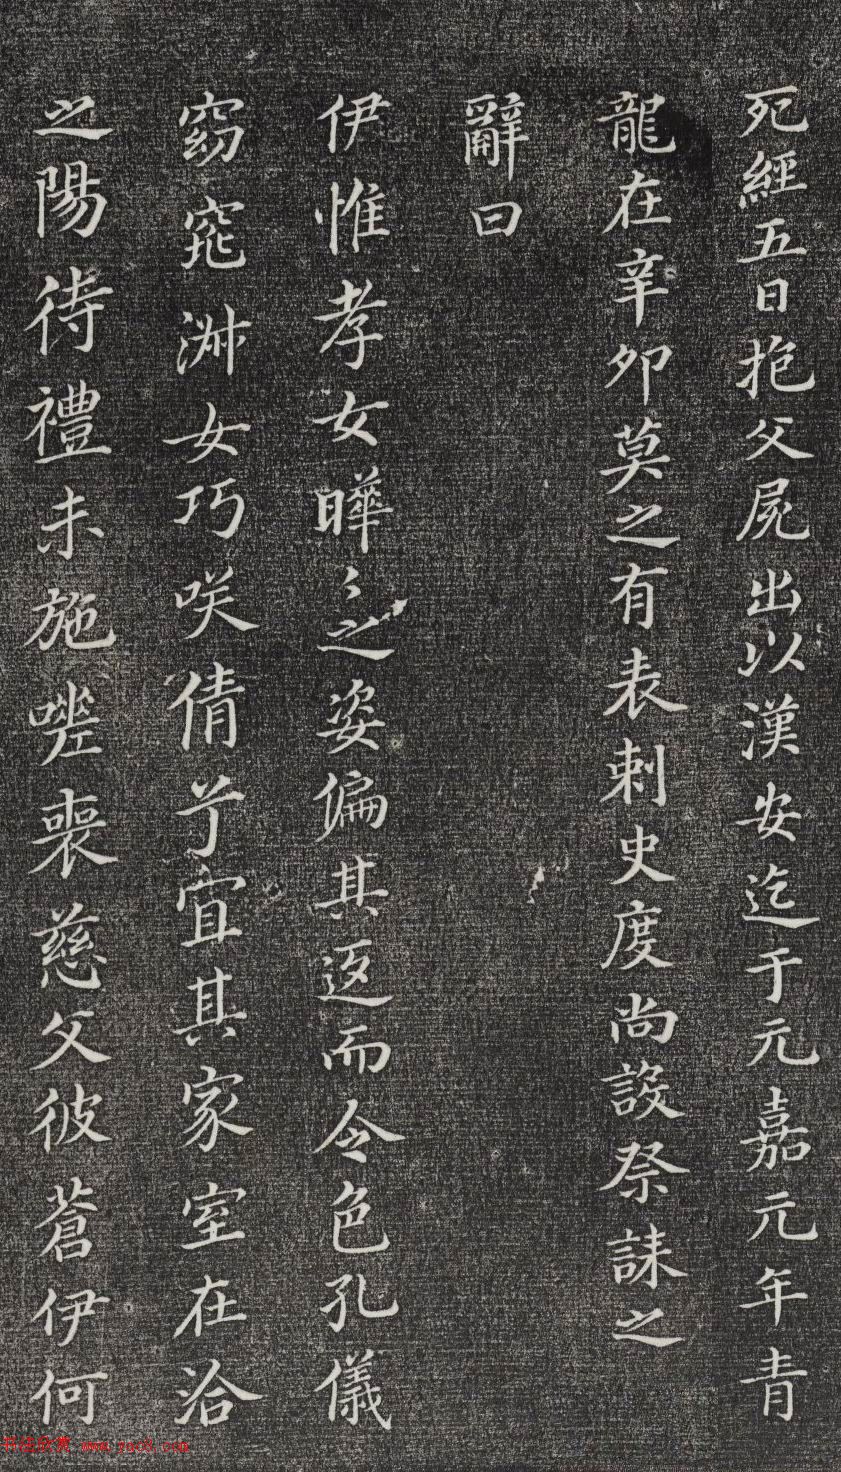 死經五日抱父屍出以漢安迄于元嘉元年青
龍在辛卯莫之有表刺史度尚設祭誄之
辭曰
伊惟孝女曄〻之姿偏其返而令色孔儀
窈窕淑女巧咲倩兮宜其家室在洽
之陽待禮未施嗟喪慈父彼蒼伊何
书法欣赏 www.yac8.com